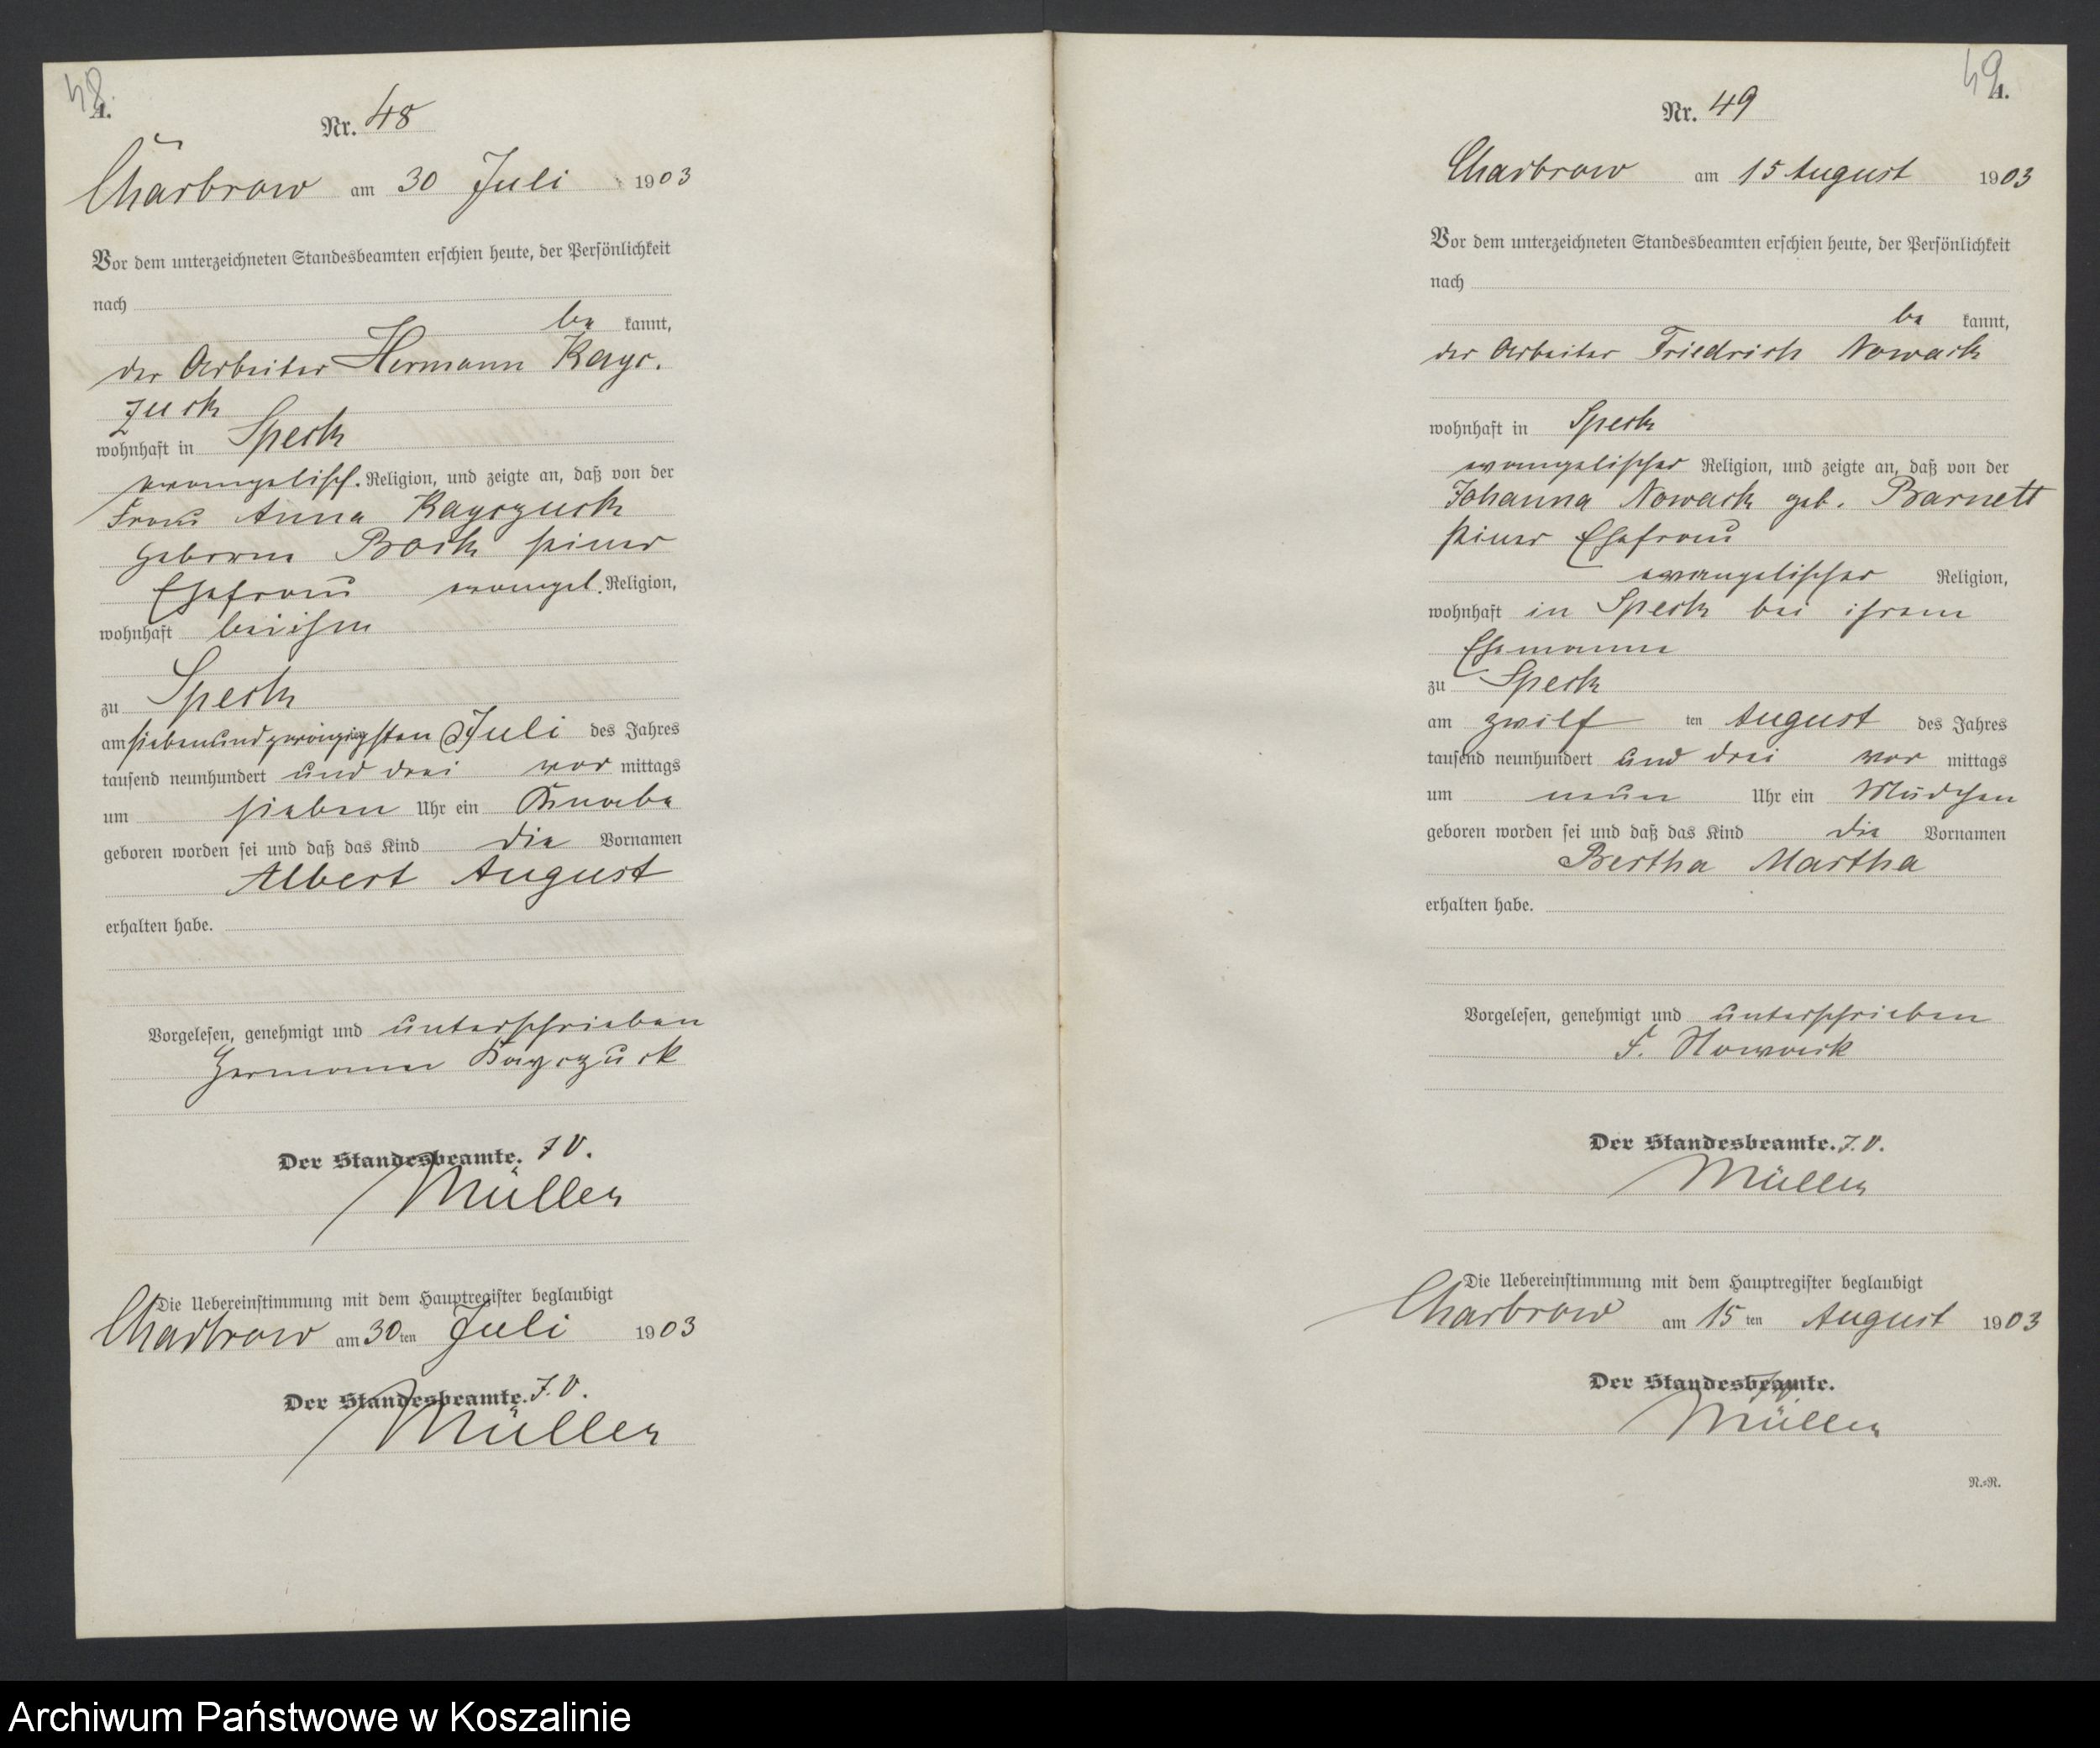 48.
A.
Nr. 48
Charbrow am 30 Juli 1903
Vor dem unterzeichneten Standesbeamten erschien heute, der Persönlichkeit
nach
be kannt,
der Arbeiter Hermann Kayc.
zuck
wohnhaft in Speck
evangelisch. Religion, und zeigte an, daß von der
Frau Anna Kayczuck
geborne Bock seiner
Ehefrau evangel. Religion,
wohnhaft bei ihm
zu Speck
am siebenundzwanzigsten Juli des Jahres
tausend neunhundert und drei vor mittags
um sieben Uhr ein Knabe
geboren worden sei und daß das Kind die Vornamen
Albert August
erhalten habe.
Vorgelesen, genehmigt und unterschrieben
Hermann Kayczuck
Der Standesbeamte. J V.
Müller
Die Uebereinstimmung mit dem Hauptregister beglaubigt
Charbrow am 30 ten Juli 1903
Der Standesbeamte. J. V.
Müller
49
A.
Nr. 49
Charbrow am 15 August 1903
Vor dem unterzeichneten Standesbeamten erschien heute, der Persönlichkeit
nach
be kannt,
der Arbeiter Friedrich Nowack
wohnhaft in Speck
evangelischer Religion, und zeigte an, daß von der
Johanna Nowack geb. Barnett
seiner Ehefrau
evangelischer Religion,
wohnhaft in Speck bei ihrem
Ehemanne
zu Speck
am zwölf ten August des Jahres
tausend neunhundert und drei vor mittags
um neun Uhr ein Mädchen
geboren worden sei und daß das Kind die Vornamen
Bertha Martha
erhalten habe.
Vorgelesen, genehmigt und unterschrieben
F. Nowack
Der Standesbeamte. J. V.
Müller
Die Uebereinstimmung mit dem Hauptregister beglaubigt
Charbrow am 15 ten August 1903
Der Standesbeamte.
Müller
N.=R.
Archiwum Państwowe w Koszalinie